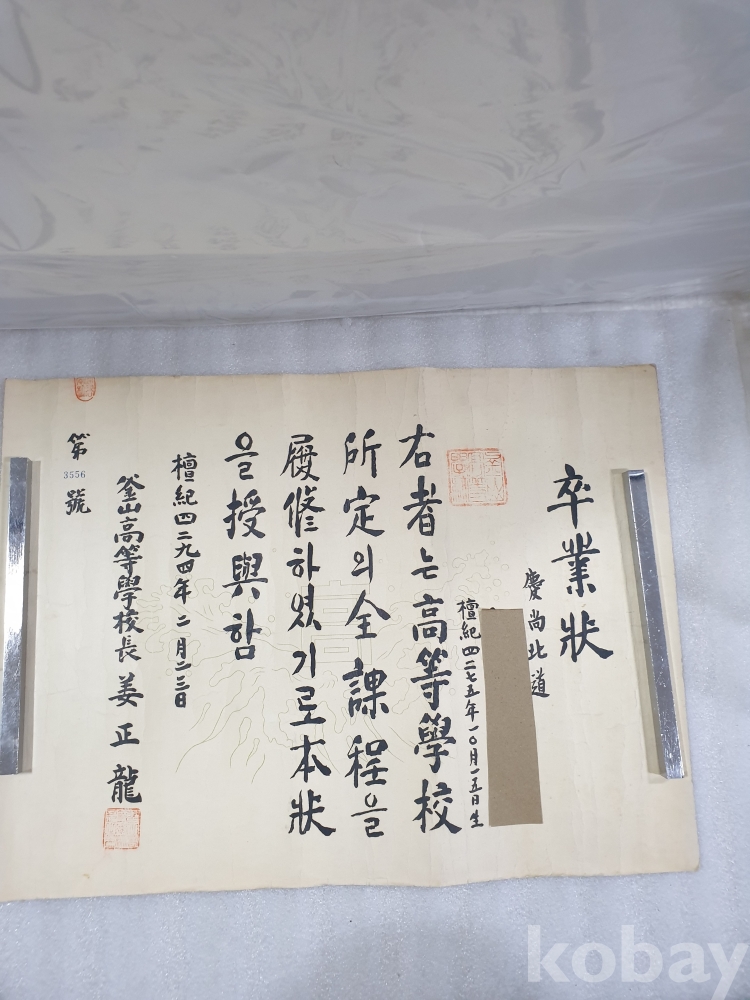 卒業狀
慶尚北道
檀紀四二七五年一〇月一五日生
右者는高等學校
所定의全課程을
履修하였기로本狀
을授與함
檀紀四二九四年二月二三日
釜山高等學校長 姜正龍
第3556號
kobay